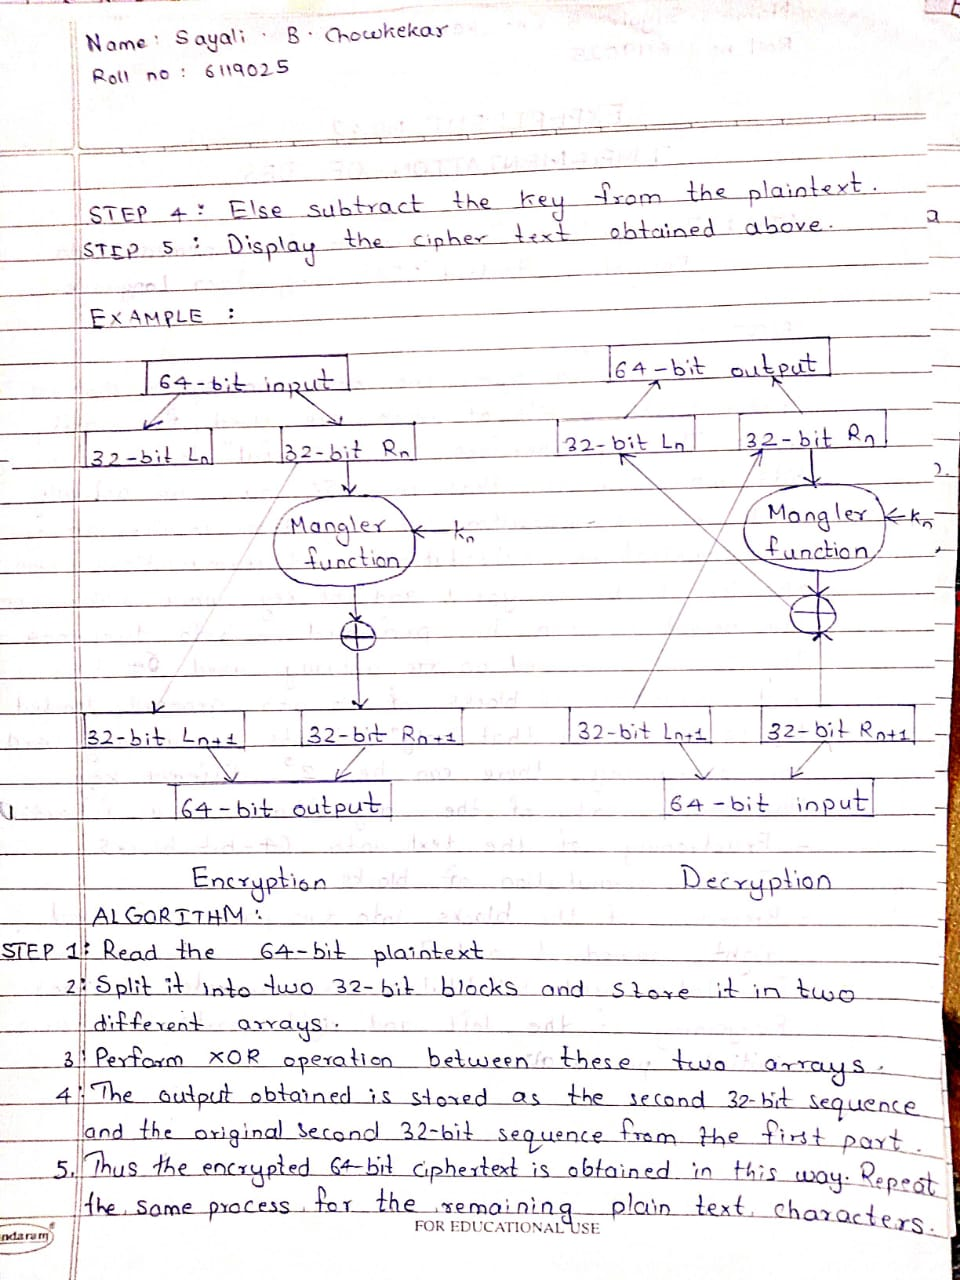 Name: Sayali . B. Chowkekar
Roll no : 6119025
STEP 4 : Else subtract the key from the plaintext.
STEP 5 : Display the cipher text obtained above.
a
EXAMPLE :
64-bit input
64-bit output
32-bit Ln
32-bit Rn
32-bit Ln
32-bit Rn
2.
Mangler
function
kn
Mangler
function
kn
32-bit Ln+1
32-bit Rn+1
32-bit Ln+1
32-bit Rn+1
64-bit output
64-bit input
Encryption
Decryption
ALGORITHM :
STEP 1: Read the 64-bit plaintext
2: Split it into two 32-bit blocks and store it in two
different arrays.
3: Perform XOR operation between these two arrays.
4: The output obtained is stored as the second 32-bit sequence
and the original second 32-bit sequence from the first part.
5. Thus the encrypted 64-bit ciphertext is obtained in this way. Repeat
the same process for the remaining plain text characters.
ndaram
FOR EDUCATIONAL USE